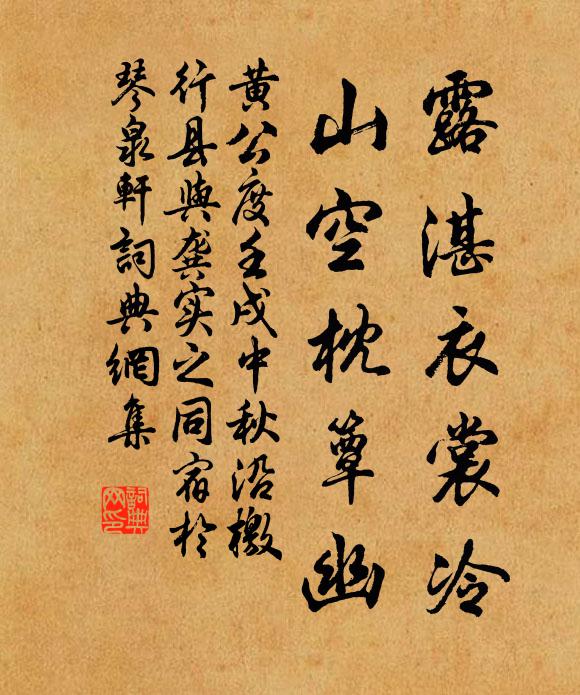 露湛衣裳冷
山空枕簟幽
黄公度壬戌中秋沿檄
行县與龚实之同宿於
琴泉軒詞典網集
詞典
网印